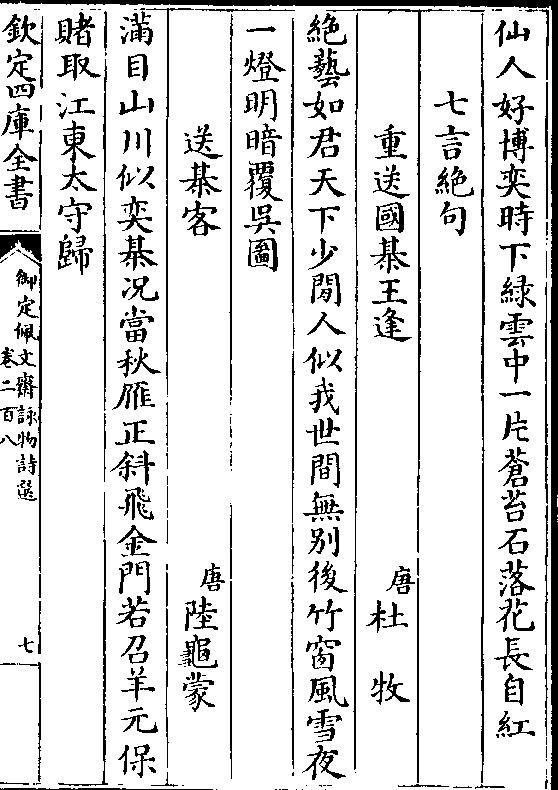 仙人好博奕時下緑雲中一片蒼苔石落花長自紅
七言絶句
重送國棊王逢 唐 杜牧
絶藝如君天下少閒人似我世間無别後竹窗風雪夜
一燈明暗覆吳圖
送棊客 唐 陸龜蒙
滿目山川似奕棊況當秋雁正斜飛金門若召羊元保
賭取江東太守歸
欽定四庫全書
御定佩文齋詠物詩選
卷二百八
七